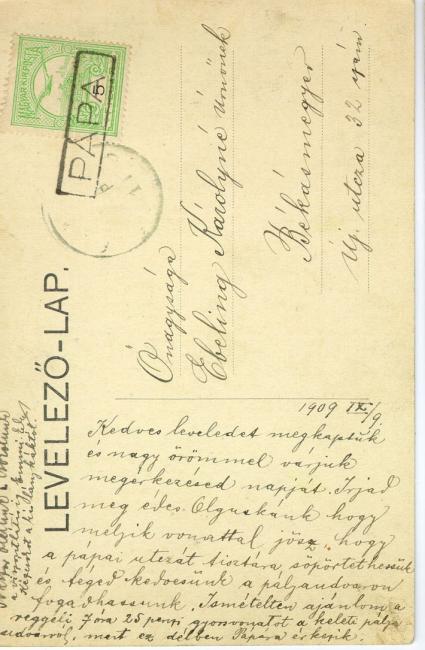 MAGYAR KIR. POSTA
PÁPA
LEVELEZŐ-LAP.
Ő nagysága
Ebeling Károlyné úrnőnek
Békásmegyer
Új utcza 32 szám.
1909 IX/9.
Kedves leveledet megkaptuk
és nagy örömmel várjuk
megérkezésed napját. Irjad
meg édes Olguskánk hogy
meljik vonattal jösz, hogy
a pápai utczát tisztára söpörtethessük
és téged kedvesünk a pályaudvaron
fogadhassunk. Ismételten ajánlom a
reggeli 7 óra 25 percei gyorsvonatot a keleti pálya
udvarról, mert ez délben Pápára érkezik.